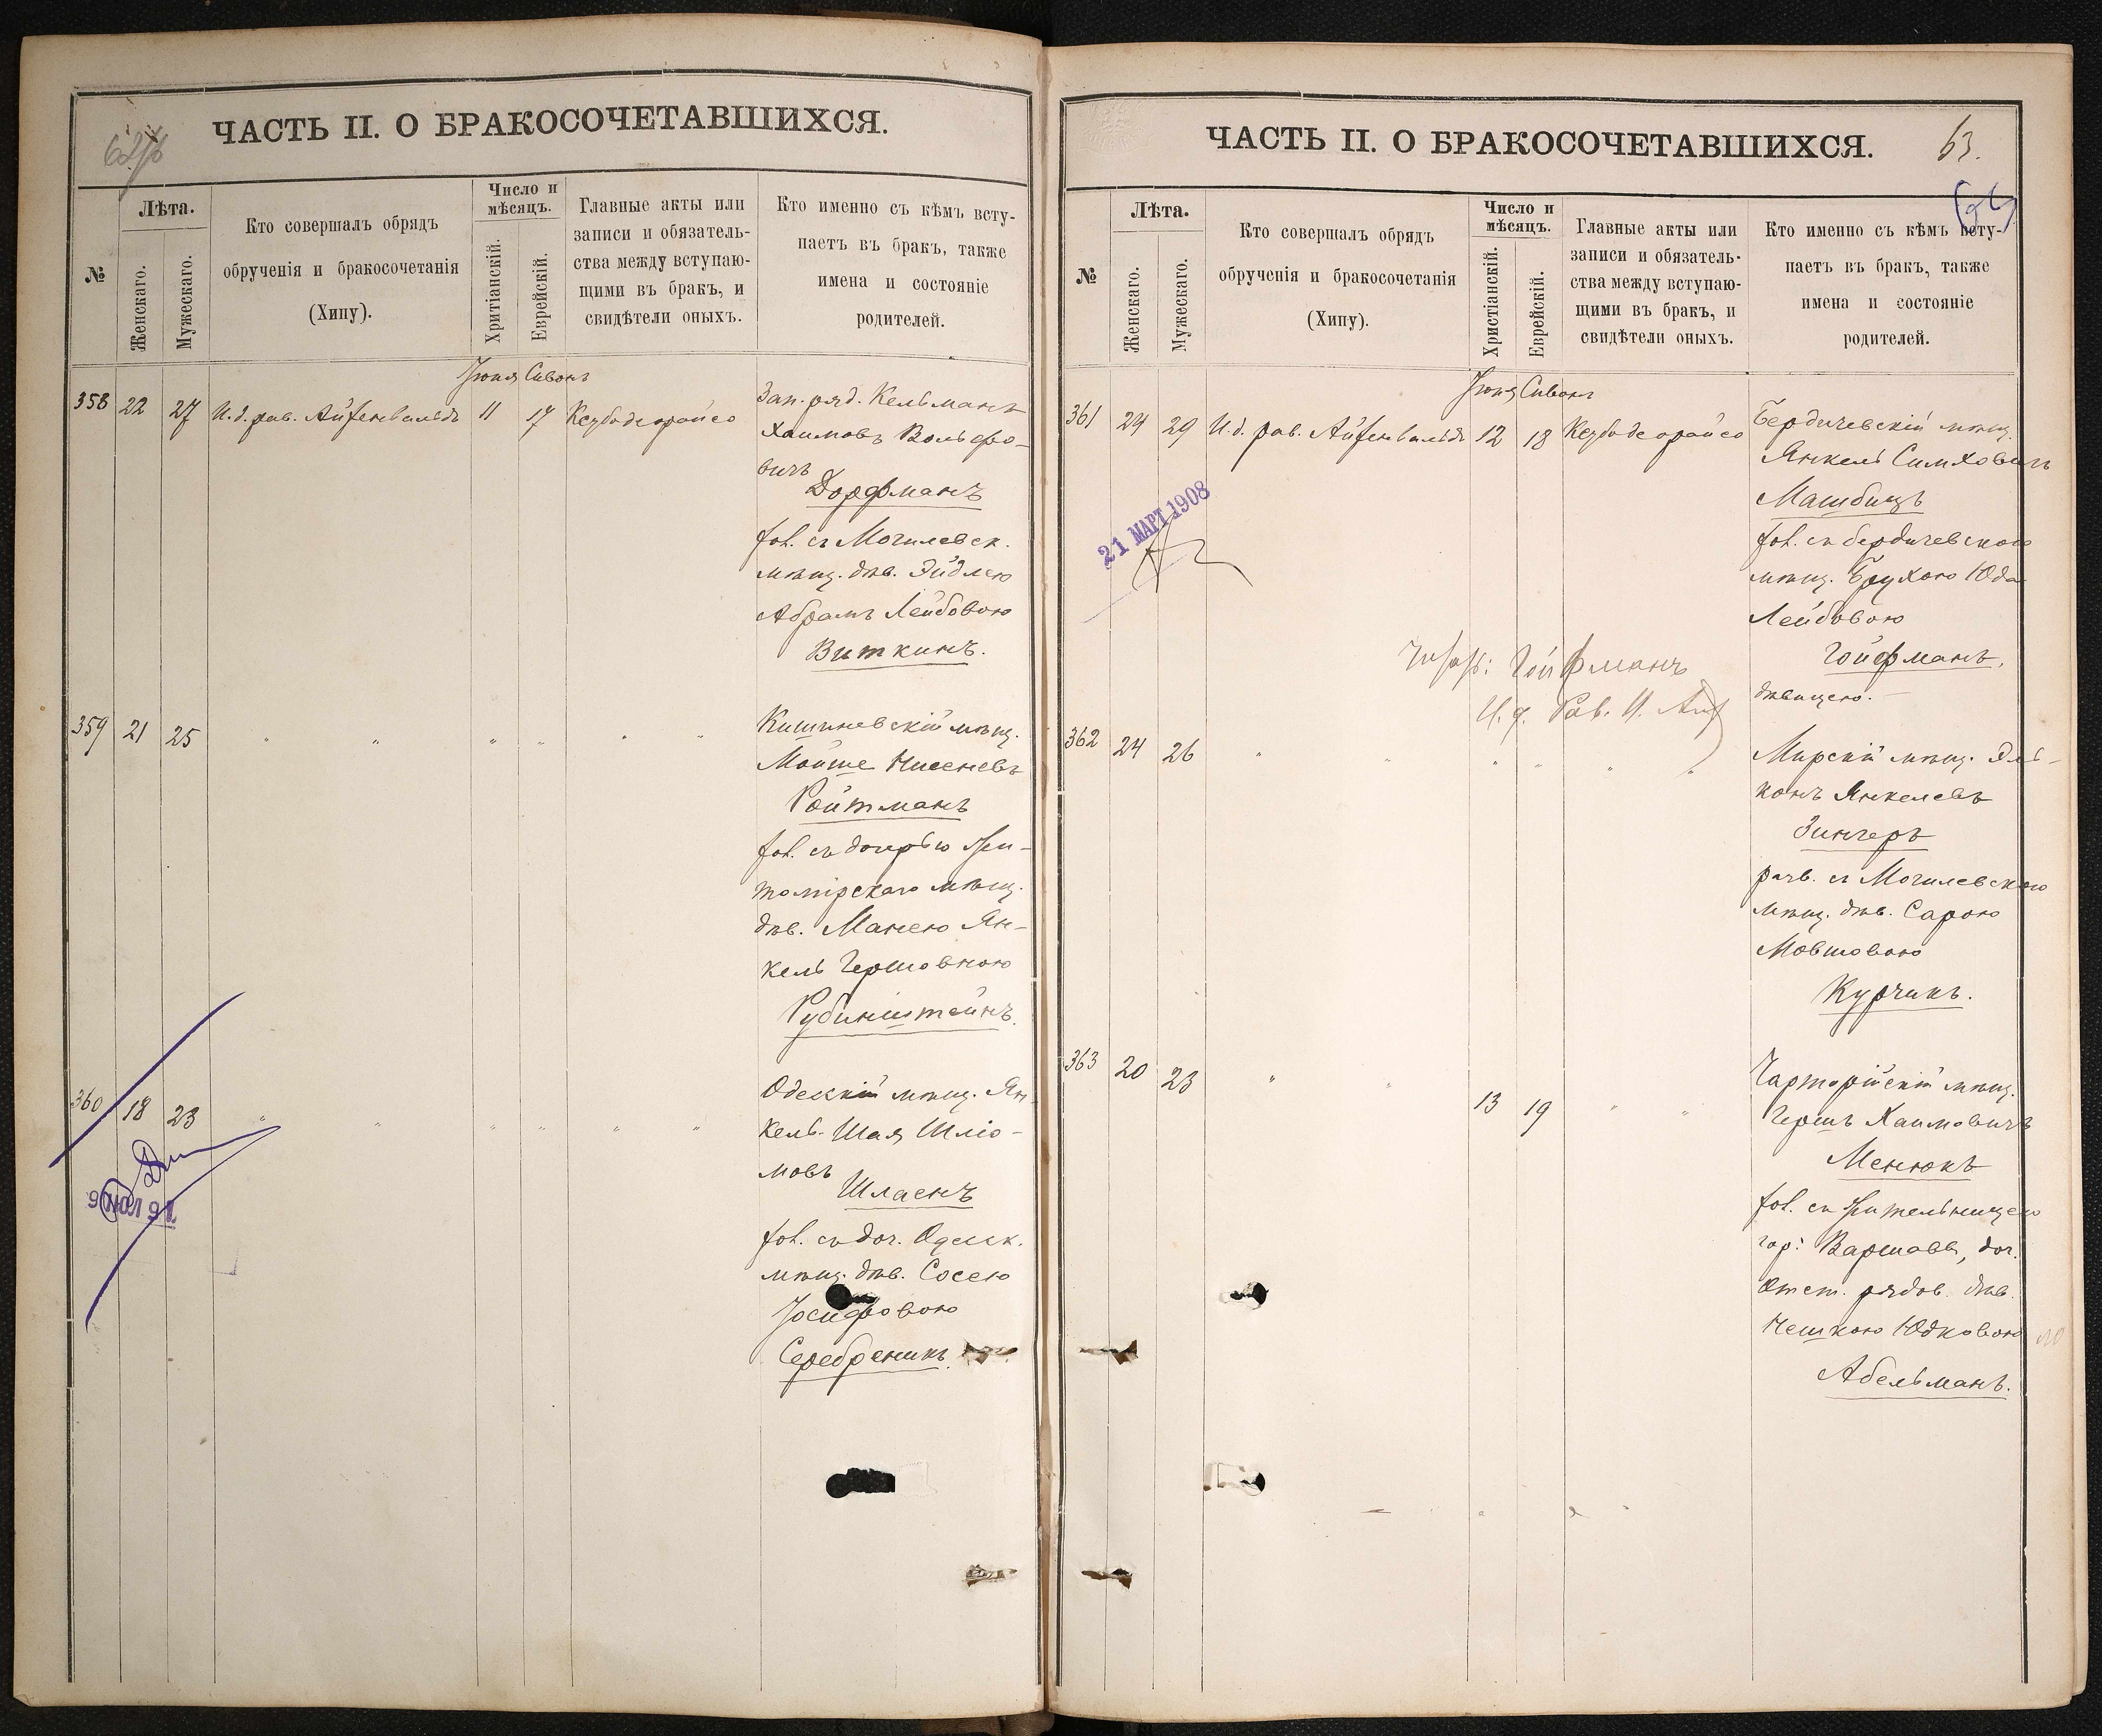 ЧАСТЬ II. О БРАКОСОЧЕТАВШИХСЯ.
№
Лѣта.
Женскаго.
Мужескаго.
Кто совершалъ обрядъ
обрученія и бракосочетанія
(Хипу).
Число и
мѣсяцъ.
Хритіанскій.
Еврейскій.
Главные акты или
записи и обязатель-
ства между вступаю-
щими въ бракъ, и
свидѣтели оныхъ.
Кто именно съ кѣмъ всту-
паетъ въ бракъ, также
имена и состояніе
родителей.
Іюня Сивонъ
358 22 27 И.д. рав. Айзенвальдъ 11 17 Кезубодеорайсо
Зап. ряд. Кельманъ
Хаимовъ Вольфо-
вичъ
Дорфманъ
хол. съ Могилевск.
мѣщ. дѣв. Эйдлею
Абрамъ Лейбовою
Виткинъ.
359 21 25 " " " " " "
Кишиневскій мѣщ.
Мойше Нисеневъ
Ройтманъ
хол. съ дочерью Жи-
томірскаго мѣщ.
дѣв. Манею Ян-
кель Гершовною
Рубинштейнъ.
360 18 23 " " " " " "
Одесскій мѣщ. Ян-
кель-Шая Шліо-
мовъ
Шлаенъ
хол. съ доч. Одесск.
мѣщ. дѣв. Сосею
Іосифовою
Серебреникъ.
ЧАСТЬ II. О БРАКОСОЧЕТАВШИХСЯ.
63.
№
Лѣта.
Женскаго.
Мужескаго.
Кто совершалъ обрядъ
обрученія и бракосочетанія
(Хипу).
Число и
мѣсяцъ.
Христіанскій.
Еврейскій.
Главные акты или
записи и обязатель-
ства между вступаю-
щими въ бракъ, и
свидѣтели оныхъ.
Кто именно съ кѣмъ всту-
паетъ въ бракъ, также
имена и состояніе
родителей.
Іюня Сивонъ
361 24 29 И.д. рав. Айзенвальдъ 12 18 Кезубодеорайсо
Бердичевскій мѣщ.
Янкель Симховичъ
Машбицъ
хол. съ бердичевскою
мѣщ. Брухою Юда
Лейбовою
Гойфманъ,
дѣвицею.
21 МАРТ 1908
Гойфманъ
И. д. Рав.
362 24 26 " " " " " "
Мирскій мѣщ. Эль-
конъ Янкелевъ
Зингеръ
разв. съ Могилевскою
мѣщ. дѣв. Сарою
Мовшовою
Курчикъ.
363 20 23 " " 13 19 " "
Чарторійскій мѣщ.
Гершъ Хаимовичъ
Менюкъ
хол. съ жительницею
гор: Варшавы, доч.
отст. рядов. дѣв.
Нешкою Юдковою
Абельманъ.